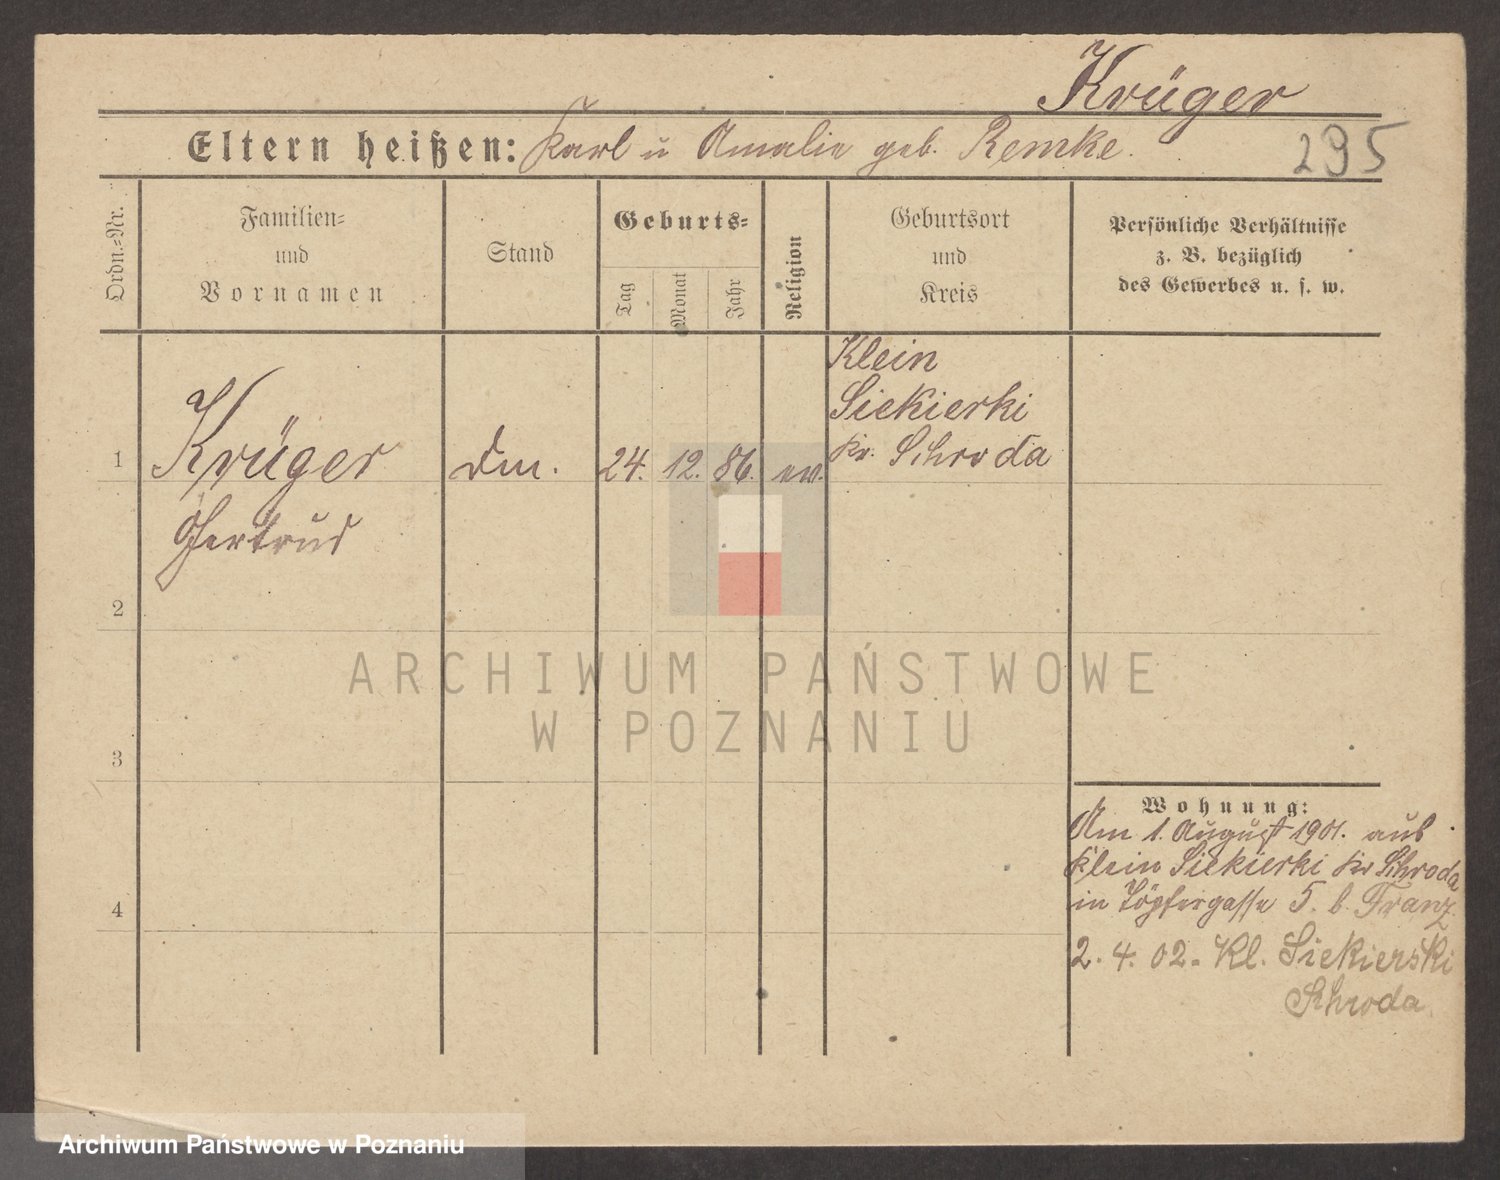 Krüger
Eltern heißen: Karl u Amalie geb. Remke.
295
Ordn.-Nr.
Familien-
und
Vornamen
Stand
Geburts-
Tag
Monat
Jahr
Religion
Geburtsort
und
Kreis
Persönliche Verhältnisse
z. B. bezüglich
des Gewerbes u. s. w.
Klein
Siekierki
Kr. Schroda
1 Krüger Dm. 24. 12. 86. ev.
Gertrud
2
3
4
Wohnung:
Am 1. August 1901. aus
Klein Siekierki Kr Schroda
in Töpfergasse 5. b. Franz
2. 4. 02. Kl. Siekierski
Schroda
ARCHIWUM PAŃSTWOWE
W POZNANIU
Archiwum Państwowe w Poznaniu